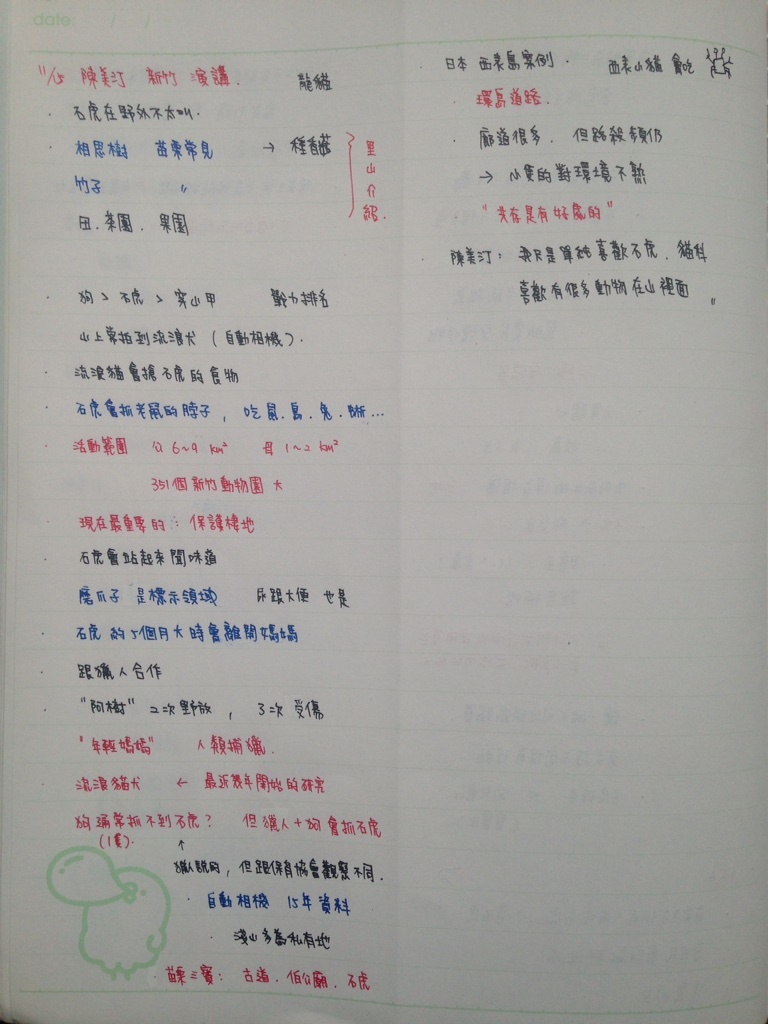 date: / /
陳美汀 新竹 演講. 龍貓
· 石虎在野外不太叫.
· 相思樹 苗栗常見 → 種香菇
竹子 〃
田. 茶園. 果園
里山介紹.
· 狗 > 石虎 > 穿山甲 戰力排名
山上常拍到流浪犬 (自動相機).
· 流浪貓會搶石虎的食物
· 石虎會抓老鼠的脖子, 吃鼠.鳥.兔.蜥...
· 活動範圍 公 6~9 km² 母 1~2 km²
351個新竹動物園大
· 現在最重要的: 保護棲地
· 石虎會站起來聞味道
磨爪子 是標示領域 尿跟大便 也是
· 石虎 約5個月大時會離開媽媽
· 跟獵人合作
· "阿樹" 2次野放, 3次 受傷
"年輕媽媽" 人類捕獵.
· 流浪貓犬 ← 最近幾年開始的研究
· 狗通常抓不到石虎? 但獵人+狗會抓石虎
(1隻). ↑
獵人說的, 但跟保育協會觀察不同.
· 自動相機 15年資料
· 淺山多為私有地
· 苗栗三寶: 古道. 伯公廟. 石虎
· 日本 西表島案例. 西表山貓 會吃
· 環島道路.
· 廊道很多, 但路殺頻仍
→ 小隻的對環境不熟
"共存是有好處的"
· 陳美汀: 我只是單純喜歡石虎. 貓科
喜歡有很多動物在山裡面 〃